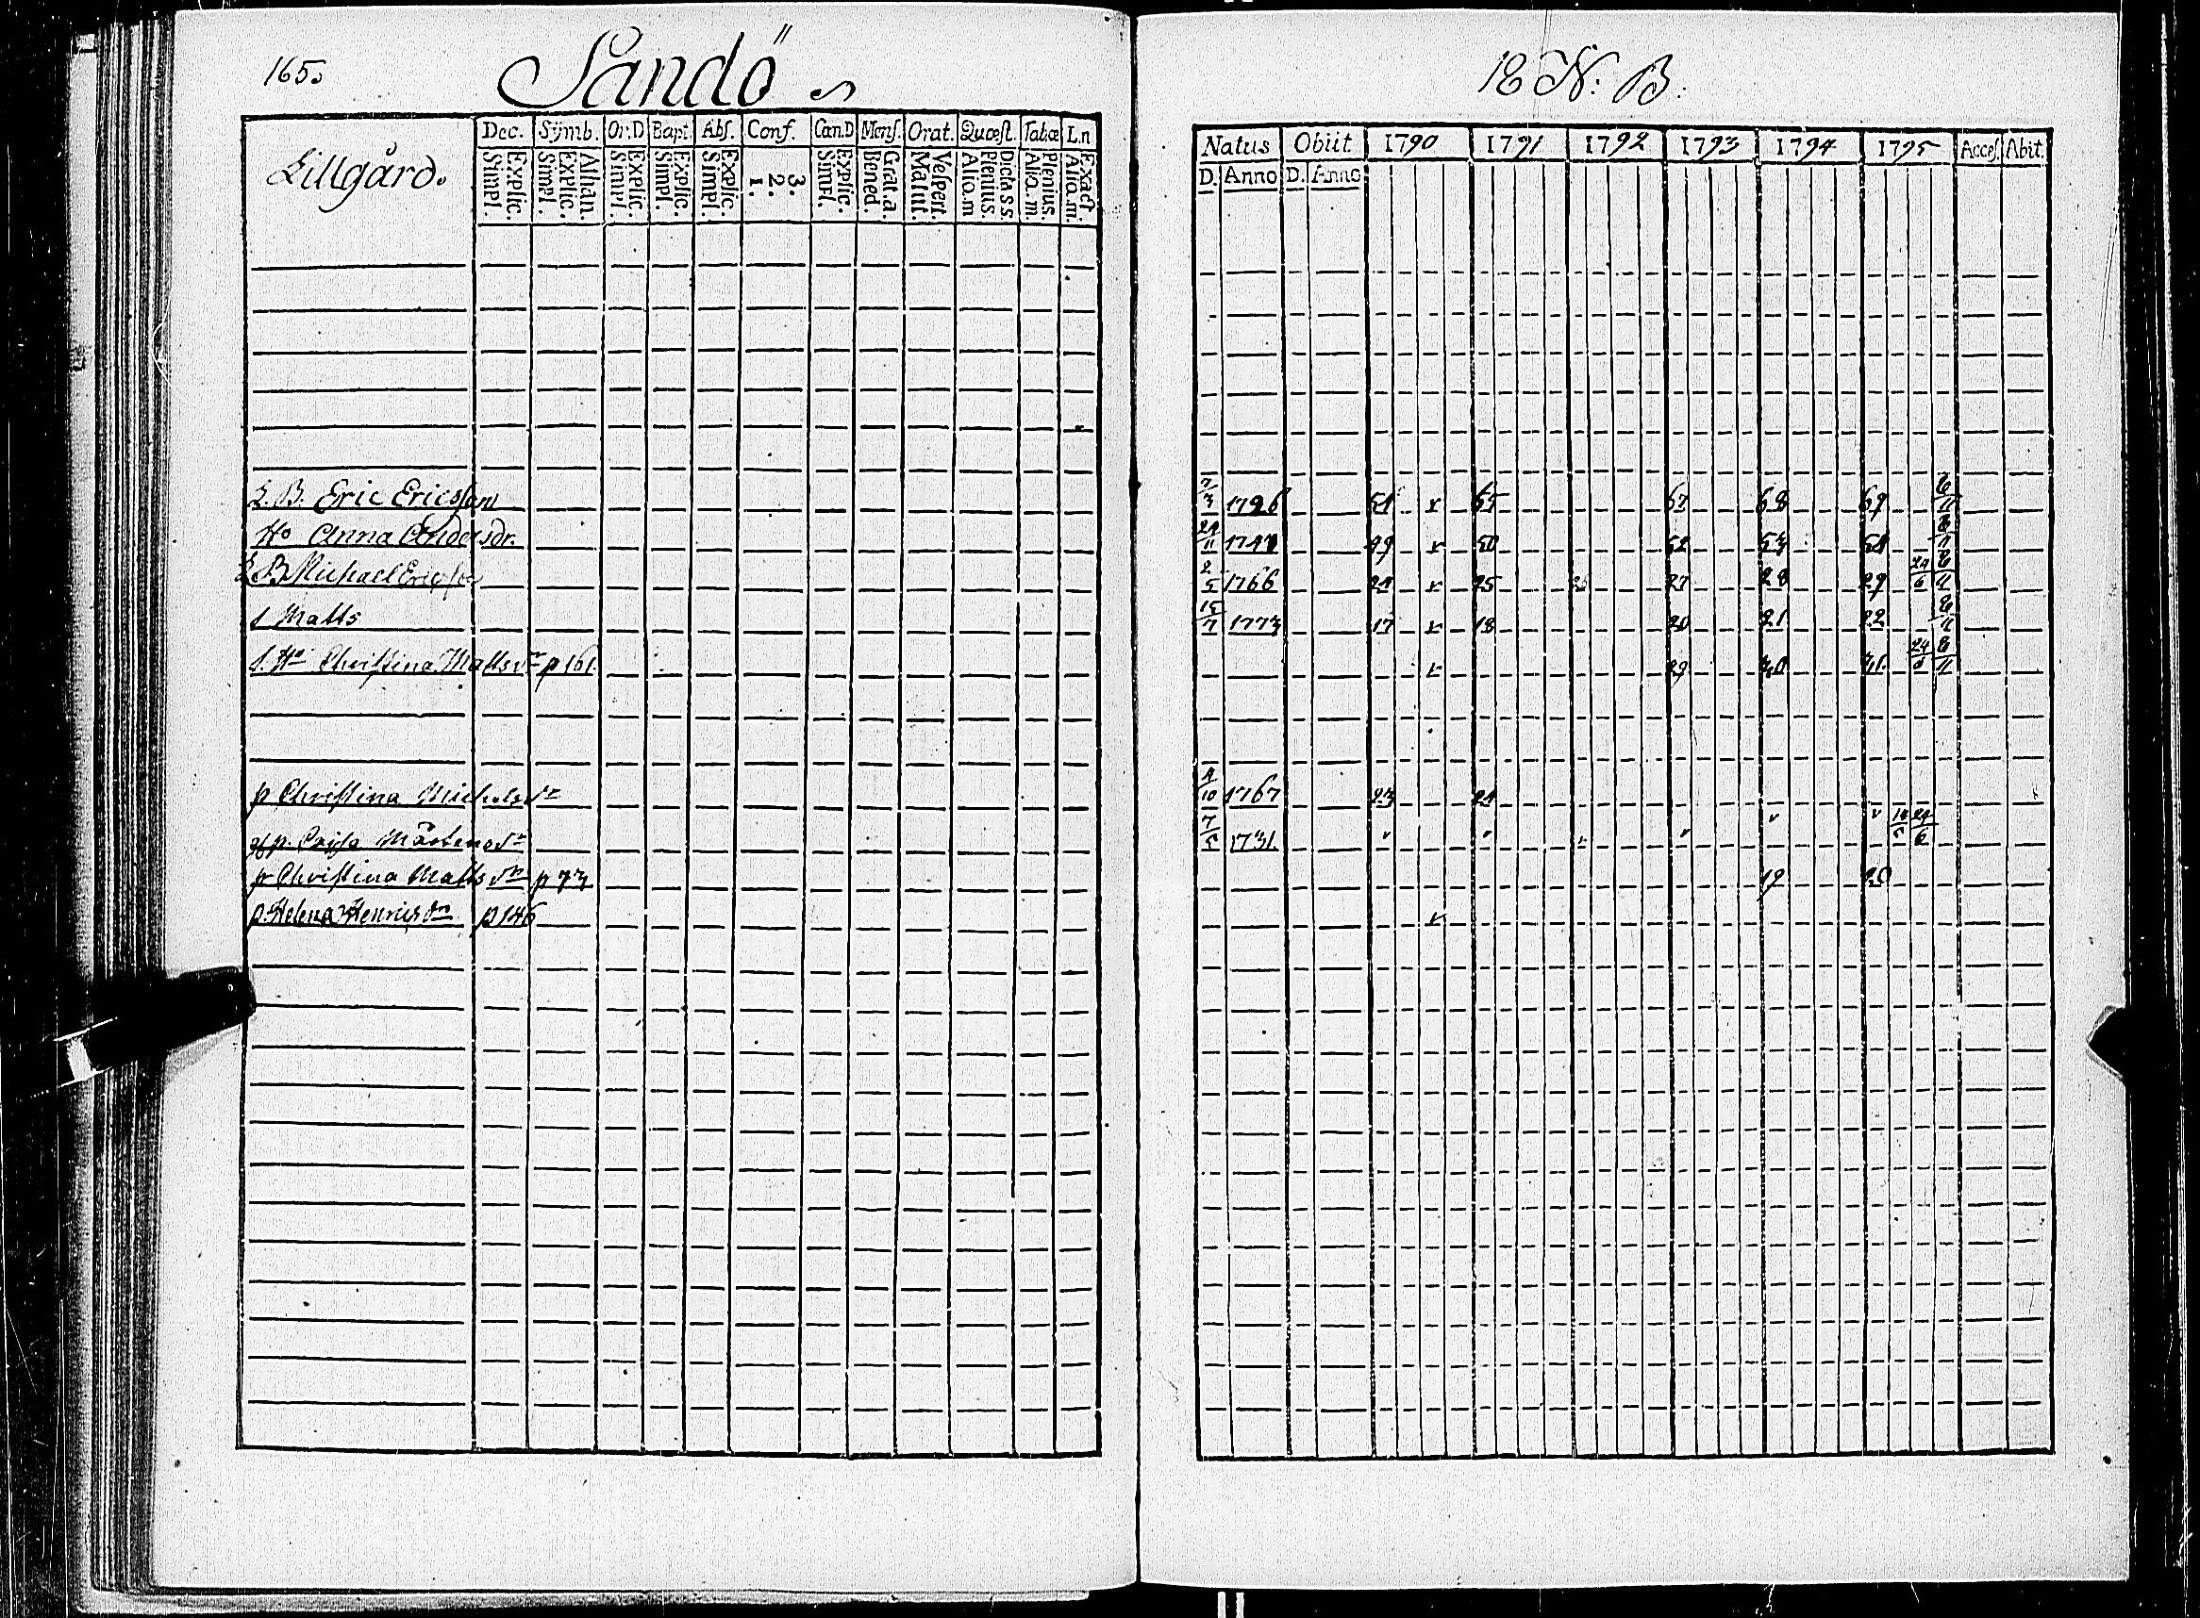 165.
Sandö
Lillgård.
Dec. Symb. Or.D Bapt. Abs. Conf. Cæn.D Mens. Orat. Quæst. Tabæ L.n
Simpl. Explic. Simpl. Explic. Athan. Simpl. Explic. Simpl. Explic. Simpl. Explic. 1. 2. 3. Simpl. Explic. Bened. Grat.a. Matut. Vespert. Alio.m Plenius. Dicta S.S. Alio.m. Plenius. Alio.m. Exact
L. B. Eric Ericsson
Ho Anna Andersdr.
L B Michael Ericsson
s Matts
s. Ho Christina Mattsdr p 161.
p Christina Michelsdr
p. Caisa Mårtensdr
p Christina Mattsdr p 73
p. Helena Henricsdr p 146
18 N: B:
Natus Obiit 1790 1791 1792 1793 1794 1795 Acces. Abit.
D. Anno D. Anno
7/3 1726 64 x 65 67 68 69 8/11
24/11 1741 49 x 50 52 53 54 8/11
2/5 1766 24 x 25 26 27 28 29 24/6 8/11
15/7 1773 17 x 18 20 21 22 8/11
x 29 30 31 24/6 8/11
4/10 1767 23 24
7/5 1731 24/6
19 20
x